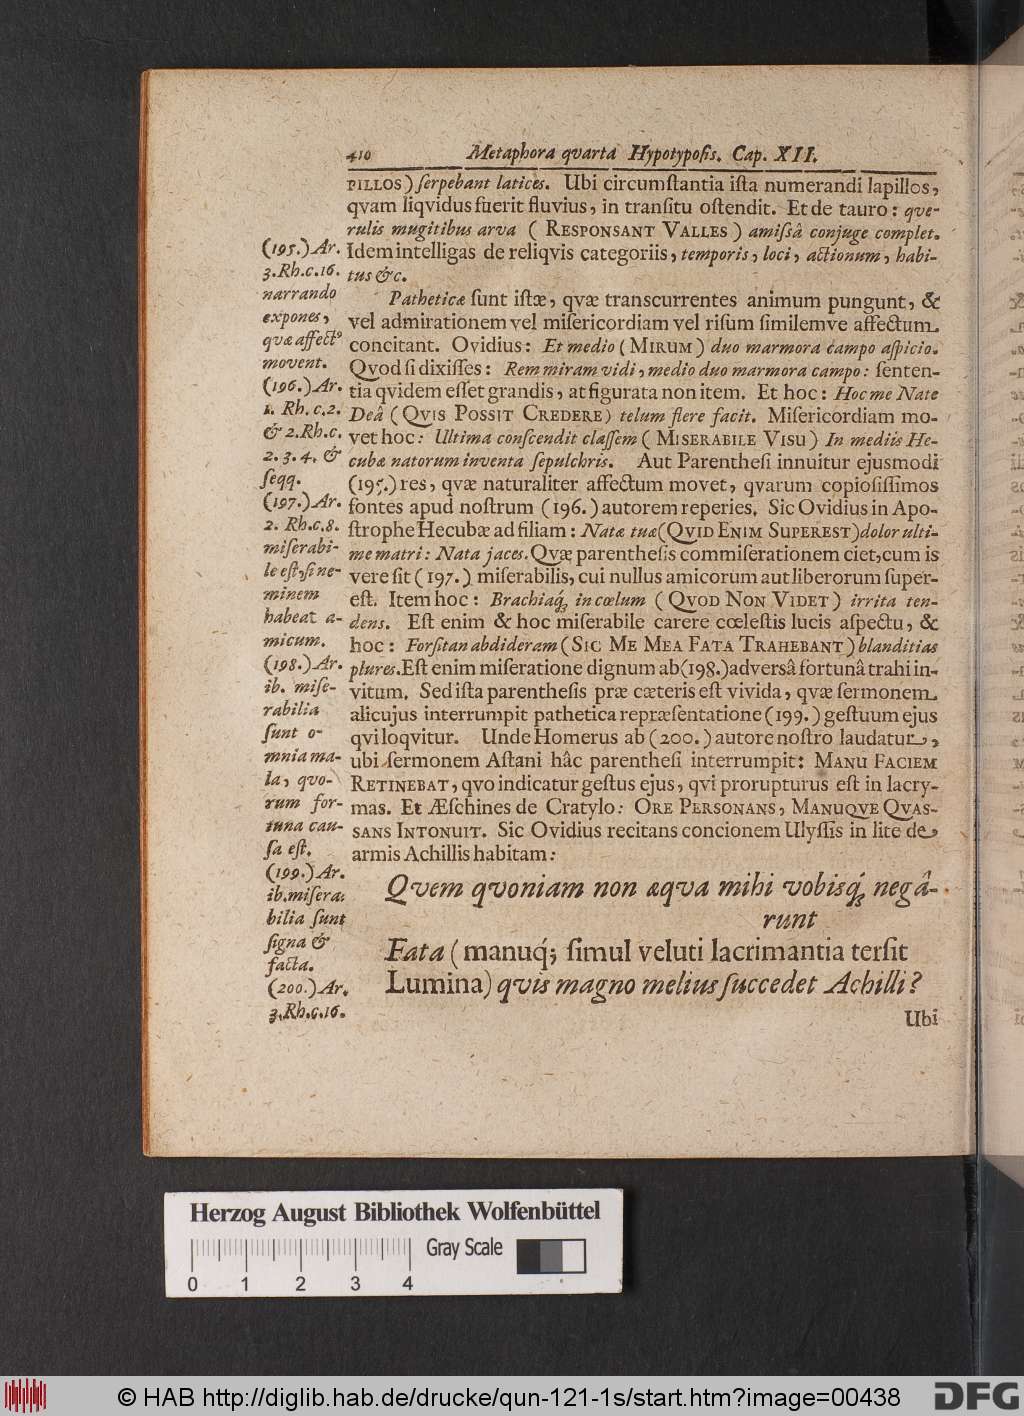 410 Metaphora qvarta Hypotyposis. Cap. XII.
PILLOS) ſerpebant latices. Ubi circumſtantia iſta numerandi lapillos,
qvam liqvidus fuerit fluvius, in tranſitu oſtendit. Et de tauro: qve-
rulis mugitibus arva ( RESPONSANT VALLES ) amiſsâ conjuge complet.
Idem intelligas de reliqvis categoriis, temporis, loci, actionum, habi-
tus &c.
Patheticæ ſunt iſtæ, qvæ transcurrentes animum pungunt, &
vel admirationem vel miſericordiam vel riſum ſimilemve affectum
concitant. Ovidius: Et medio (MIRUM) duo marmora campo aſpicio.
Qvod ſi dixiſſes: Rem miram vidi, medio duo marmora campo: ſenten-
tia qvidem eſſet grandis, at figurata non item. Et hoc: Hoc me Nate
Deâ (QVIS POSSIT CREDERE) telum flere facit. Miſericordiam mo-
vet hoc: Ultima conſcendit claſſem ( MISERABILE VISU ) In mediis He-
cubæ natorum inventa ſepulchris. Aut Parentheſi innuitur ejusmodi
(195.) res, qvæ naturaliter affectum movet, qvarum copioſiſſimos
fontes apud noſtrum (196.) autorem reperies. Sic Ovidius in Apo-
ſtrophe Hecubæ ad filiam: Nata tuæ (QVID ENIM SUPEREST) dolor ulti-
me matri: Nata jaces. Qvæ parentheſis commiſerationem ciet, cum is
vere ſit (197.) miſerabilis, cui nullus amicorum aut liberorum ſuper-
eſt. Item hoc: Brachiaq́; in cœlum (QVOD NON VIDET) irrita ten-
dens. Eſt enim & hoc miſerabile carere cœleſtis lucis aſpectu, &
hoc: Forſitan abdideram (SIC ME MEA FATA TRAHEBANT) blanditias
plures. Eſt enim miſeratione dignum ab (198.) adversâ fortunâ trahi in-
vitum. Sed iſta parentheſis præ cæteris eſt vivida, qvæ ſermonem
alicujus interrumpit pathetica repræſentatione (199.) geſtuum ejus
qvi loqvitur. Unde Homerus ab (200.) autore noſtro laudatur,
ubi ſermonem Aſtani hâc parentheſi interrumpit: MANU FACIEM
RETINEBAT, qvo indicatur geſtus ejus, qvi prorupturus eſt in lacry-
mas. Et Æſchines de Cratylo: ORE PERSONANS, MANUQVE QVAS-
SANS INTONUIT. Sic Ovidius recitans concionem Ulyſſis in lite de
armis Achillis habitam:
Qvem qvoniam non æqva mihi vobisq́; negâ-
runt
Fata (manuq́; ſimul veluti lacrimantia terſit
Lumina) qvis magno melius ſuccedet Achilli?
Ubi
(195.) Ar.
3. Rh. c. 16.
narrando
expones,
qvæ affectꝰ
movent.
(196.) Ar.
1. Rh. c. 2.
& 2. Rh. c.
2. 3. 4. &
ſeqq.
(197.) Ar.
2. Rh. c. 8.
miſerabi-
le eſt, ſi ne-
minem
habeat a-
micum.
(198.) Ar.
ib. miſe-
rabilia
ſunt o-
mnia ma-
la, qvo-
rum for-
tuna cau-
ſa eſt.
(199.) Ar.
ib. miſera:
bilia ſunt
ſigna &
facta.
(200.) Ar.
3. Rh. c. 16.
Herzog August Bibliothek Wolfenbüttel
Gray Scale
0 1 2 3 4
© HAB http://diglib.hab.de/drucke/qun-121-1s/start.htm?image=00438
DFG